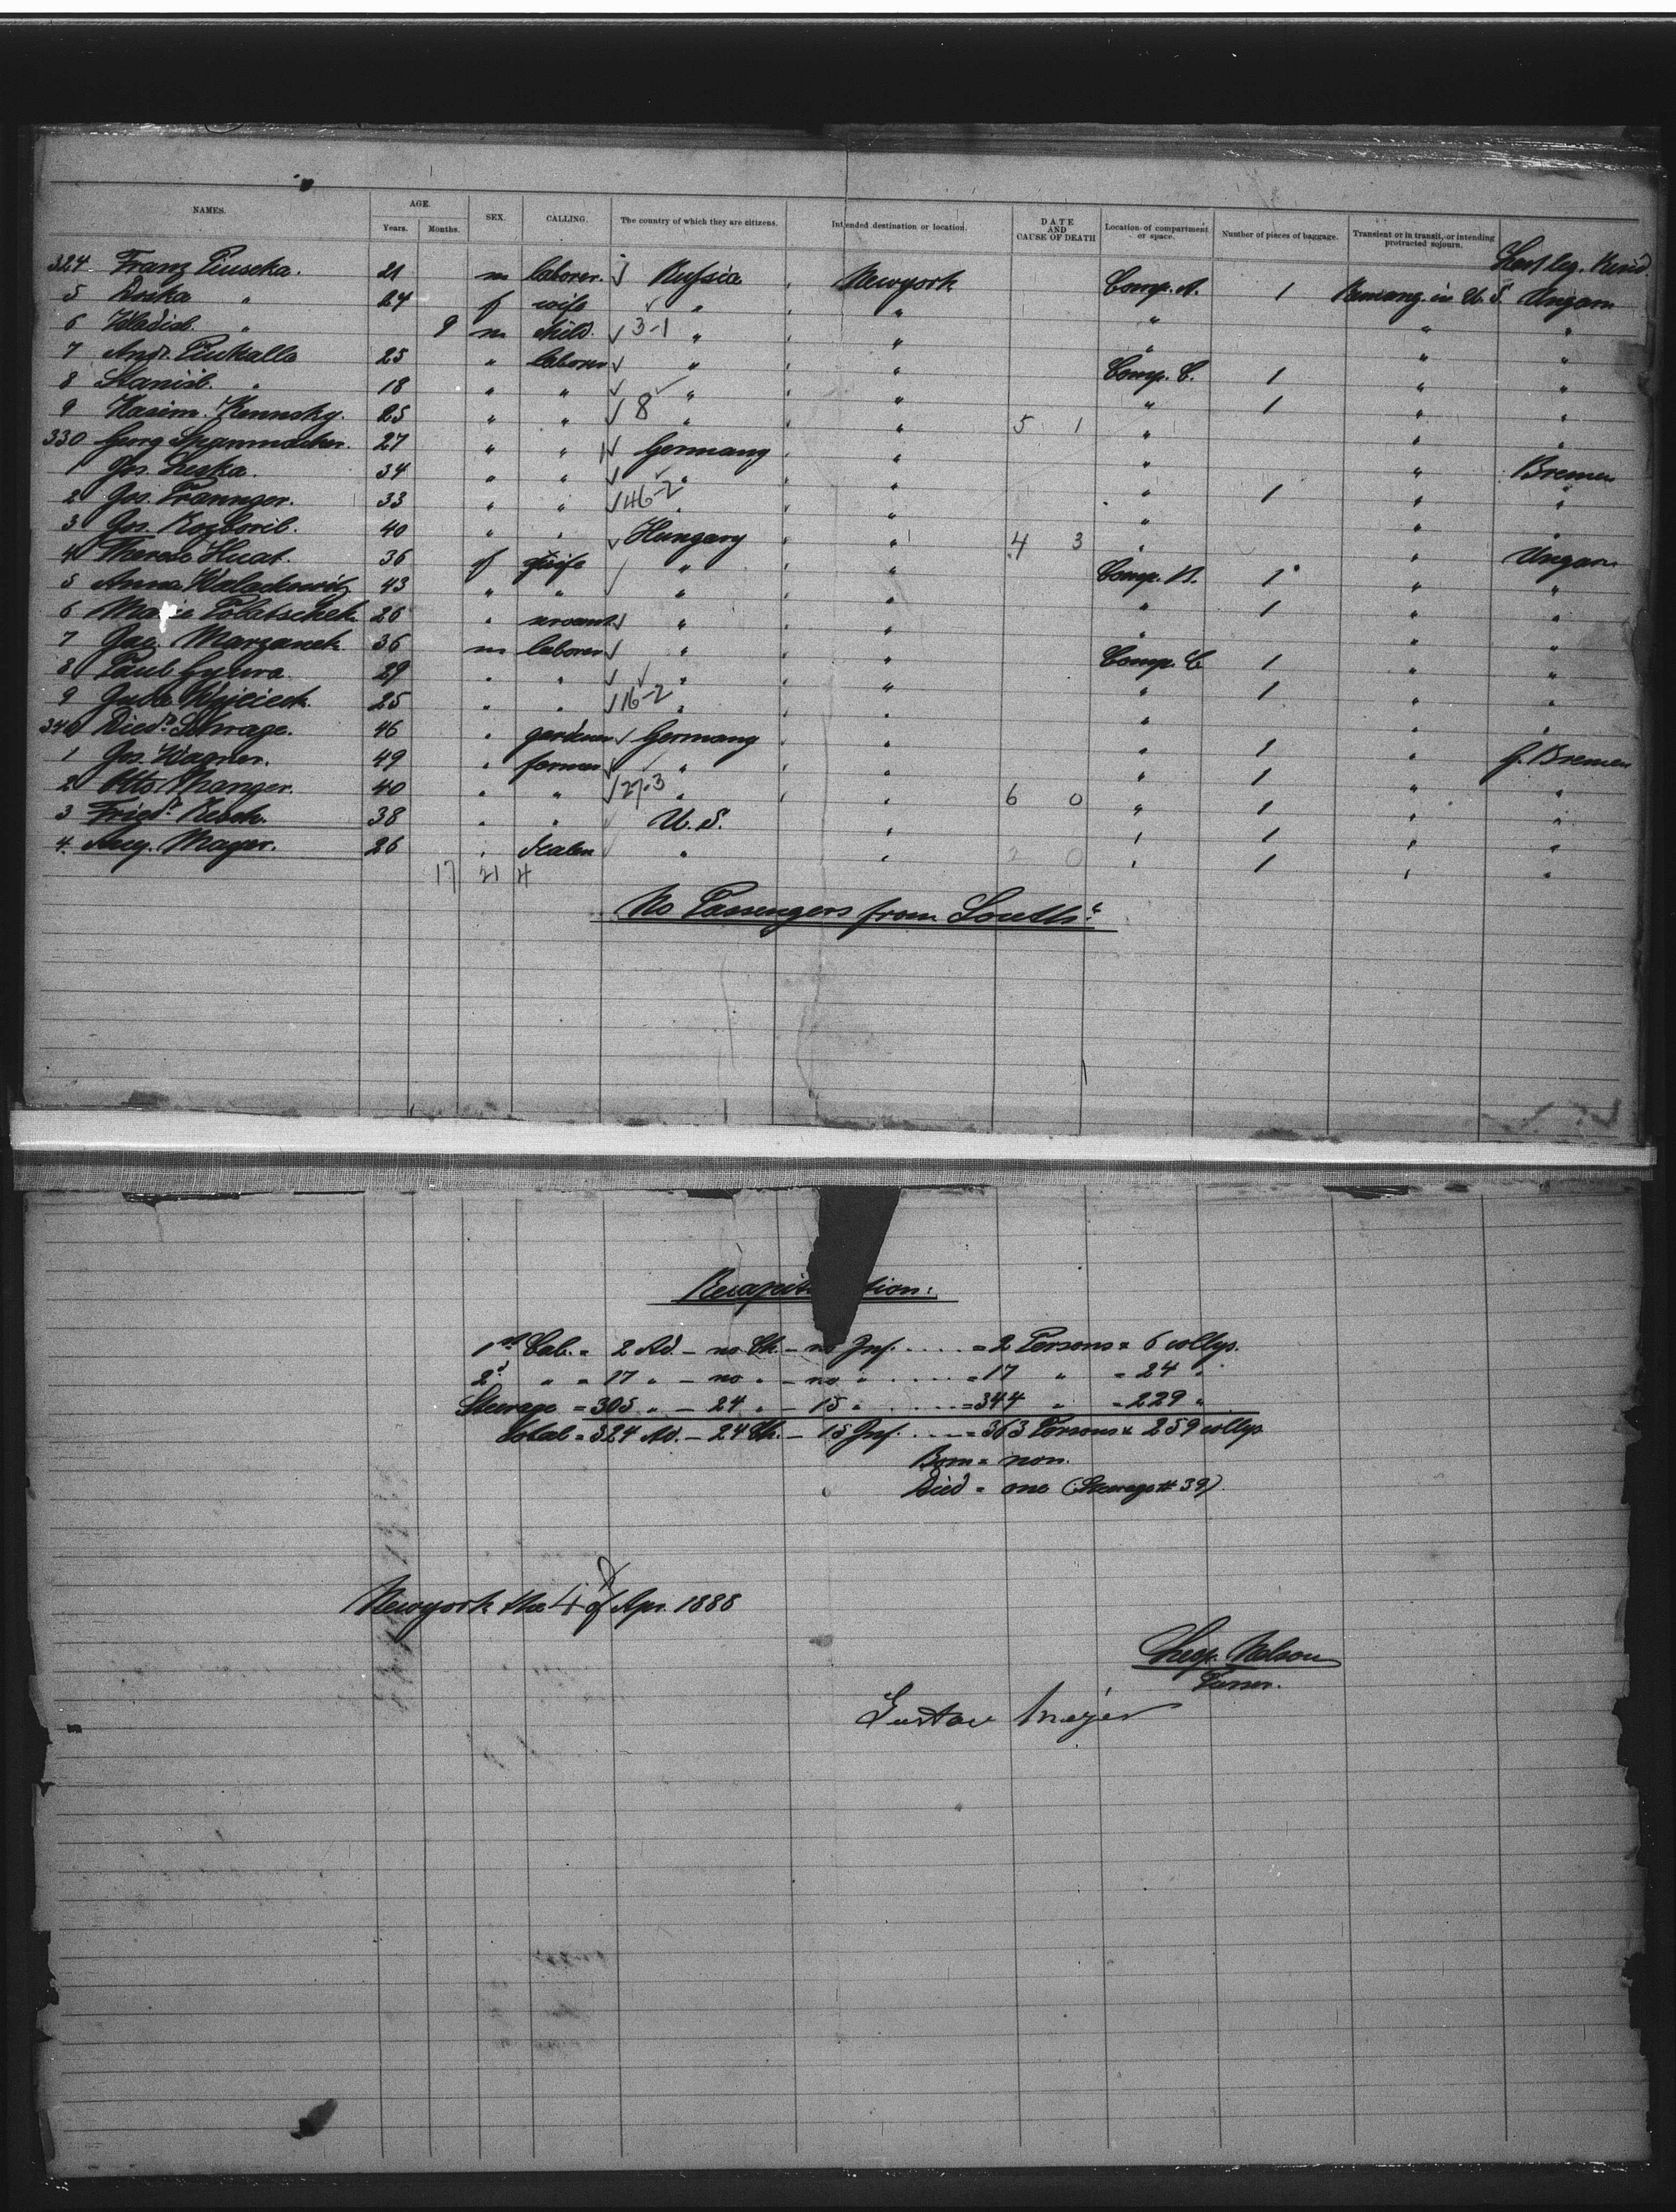 NAMES. AGE. Years. Months. SEX. CALLING. The country of which they are citizens. Intended destination or location. DATE AND CAUSE OF DEATH Location of compartment or space. Number of pieces of baggage. Transient or in transit, or intending protracted sojourn.
324 Franz 21 m laborer. Russia Newyork Comp. A. 1 in U. S. Ungarn
5 " 24 f wife " " " " "
6 Wladisl. " 9 m child. 3-1 " " " " "
7 25 " laborer " " Comp. C. 1 " "
8 Stanisl. " 18 " " " " " 1 " "
9 Kasim. 25 " " 8 " " 5 1 " " "
330 Georg 27 " " Germany " " " Bremen
1 Jos. Leska. 34 " " " " " 1 " "
2 Jos. 33 " " 46-2 " " " " "
3 Jos. 40 " " Hungary " 4 3 " " Ungarn
4 Therese 36 f wife " " Comp. A. 1 " "
5 Anna 43 " " " " " 1 " "
6 26 " servant " " " " "
7 Jac. Marzanek 36 m laborer " " Comp. C 1 " "
8 Paul 29 " " " " " 1 " "
9 25 " " 16-2 " " " " "
340 Died. Schrage. 46 " gardener Germany " " 1 " G. Bremen
1 Jos. Wagner. 49 " farmer " " " 1 " "
2 Otto 40 " " 27-3 " " 6 0 " 1 " "
3 Friedr. Resch. 38 " " U. S. " " 1 " "
4 Aug. Mayer. 26 " dealer " " 2 0 " 1 " "
17 21 4
No Passengers from South.
tion:
1st Cab. = 2 Ad. - no Ch. - no Inf. .... = 2 Persons = 6 collys.
2d " = 17 " - no " - no " .... = 17 " = 24 "
Steerage = 305 " - 24 " - 15 " .... = 344 " = 229 "
Total = 324 Ad. - 24 Ch. - 15 Inf. .... = 363 Persons & 259 collys
Born = non.
Died = one (Steerage # 39)
Newyork the 4 of Apr. 1888
Nelson
Purser.
Gustav Meyer